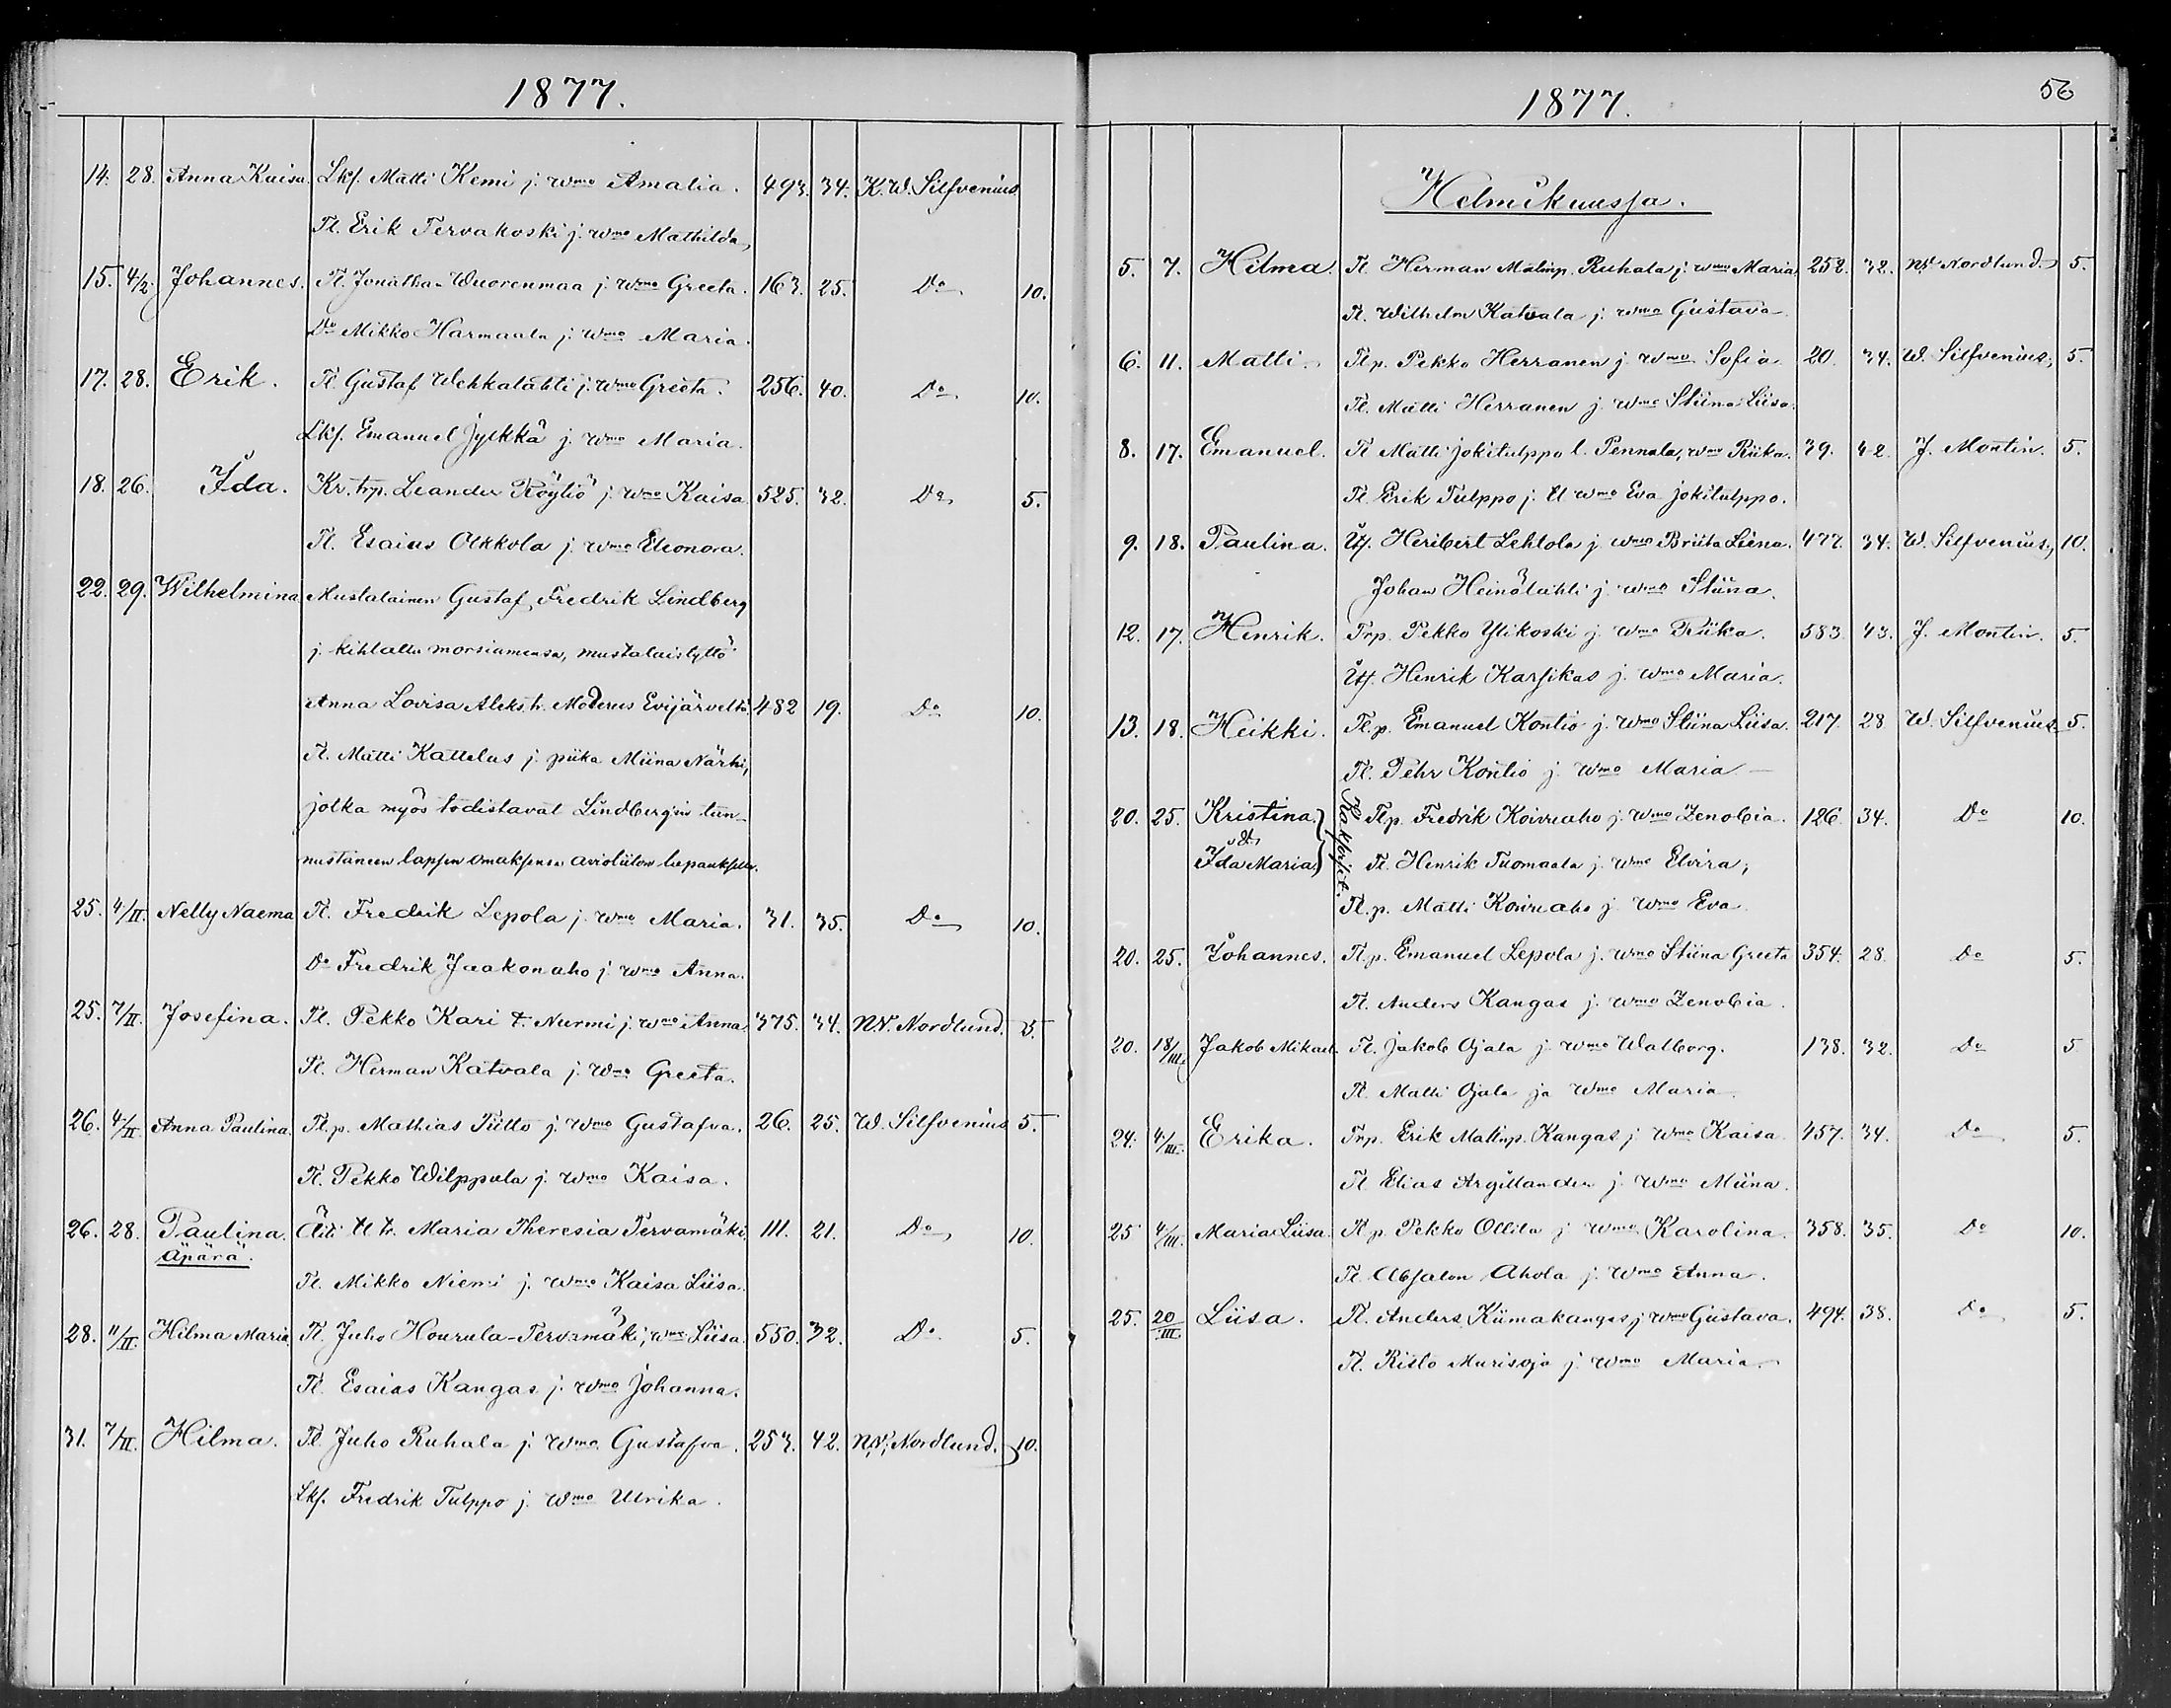 1877.
14. 28. Anna Kaisa. Lkf. Matti Kemi j. Wmo Amalia. 493. 34. K. W. Silfvenius
Tl. Erik Tervakoski j. Wmo Mathilda,
15. 4/2. Johannes. Tl. Jonathan Wuorenmaa j. Wmo Greeta. 163. 25. Do 10.
Do Mikko Harmaala j. Wmo Maria.
17. 28. Erik. Tl. Gustaf Wehkalahti j. Wmo Greeta. 256. 40. Do 10.
Lkf. Emanuel Jylkkä j. Wmo Maria.
18. 26. Ida. Kr. trp. Leander Röyliö j. Wmo Kaisa. 525. 32. Do 5.
Tl. Esaias Olkkola j. Wmo Eleonora.
22. 29. Wilhelmina Mustalainen Gustaf Fredrik Lindberg
j. kihlattu morsiamensa, mustalaistyttö
Anna Lovisa Aleks. tr. Evijärveltä. 482 19. Do 10.
Tl. Matti Kattelus j. piika Miina Närhi,
jotka myös todistavat Lindbergin tun-
nustaneen lapsen omaksensa avioliiton lupauksella.
25. 4/II. Nelly Naema Tl. Fredrik Lepola j. Wmo Maria. 31. 35. Do 10.
Do Fredrik Jaakonaho j. Wmo Anna.
25. 7/II. Josefina. Tl. Pekko Kari t. Nurmi j. Wmo Anna. 375. 34. N.N. Nordlund. 5.
Tl. Herman Katvala j. Wmo Greeta.
26. 4/II. Anna Paulina. Tl.p. Mathias Putto j. Wmo Gustafva. 26. 25. W. Silfvenius 5.
Tl. Pekko Wilppula j. Wmo Kaisa.
26. 28. Paulina. Äiti tl. tr. Maria Theresia Tervamäki. 111. 21. Do 10.
Äpärä.
Tl. Mikko Niemi j. Wmo Kaisa Liisa.
28. 11/II. Hilma Maria. Tl. Juho Hourula-Tervamäki, j. Wmo Liisa. 550. 32. Do 5.
Tl. Esaias Kangas j. Wmo Johanna.
31. 7/II. Hilma. Tl. Juho Ruhala j. Wmo Gustafva. 253. 42. N.N. Nordlund. 10.
Lkf. Fredrik Tulppo j. Wmo Ulrika.
1877.
56
Helmikuussa.
5. 7. Hilma. Tl. Herman Matinp. Ruhala j. Wmo Maria 252. 32. N.N. Nordlund. 5.
Tl. Wilhelm Katvala j. Wmo Gustava
6. 11. Matti. Tlp. Pekko Herranen j. Wmo Sofia. 20. 34. W. Silfvenius, 5.
Tl. Matti Herranen j. Wmo Stiina Liisa.
8. 17. Emanuel. Tl Matti Jokitulppo l. Pennala, Wmo Riika. 39. 42. J. Montin. 5.
Tl. Erik Tulppo j. tl Wmo Eva Jokitulppo.
9. 18. Paulina. Itf. Heribert Lehtola j. Wmo Briita Liena. 477. 34. W. Silfvenius, 10.
Johan Heinälahti j. Wmo Stiina.
12. 17. Henrik. Trp. Pekko Ylikoski j. Wmo Riika. 583. 43. J. Montin. 5.
Itf. Henrik Karsikas j. Wmo Maria.
13. 18. Heikki. Tl.p. Emanuel Kontio j. Wmo Stiina Liisa. 217. 28 W. Silfvenius 5.
Tl. Pehr Kontio j. Wmo Maria
20. 25. Kristina. Kaksoiset. Tlp. Fredrik Koivuaho j. Wmo Zenobia. 126. 34. Do 10.
&
Ida Maria Tl. Henrik Tuomaala j. Wmo Elvira;
Tl.p. Matti Koivuaho j. Wmo Eva
20. 25. Johannes. Tl.p. Emanuel Lepola j. Wmo Stiina Greeta 354. 28. Do 5.
Tl. Anders Kangas j. Wmo Zenobia.
20. 18/III. Jakob Mikael. Tl. Jakob Ojala j. Wmo Walborg. 138. 32. Do 5
Tl. Matti Ojala ja Wmo Maria
24. 4/III. Erika. Trp. Erik Matinp. Kangas j. Wmo Kaisa 457. 34. Do 5.
Tl Elias Argillander j. Wmo Miina.
25 4/III. Maria Liisa. Tl.p. Pekko Ollila j. Wmo Karolina. 358. 35. Do 10.
Tl. Absalon Ahola j. Wmo Anna.
25. 20/III Liisa. Tl. Anders Kiimakangas j Wmo Gustava. 494. 38. Do 5.
Tl. Risto Murisoja j. Wmo Maria.